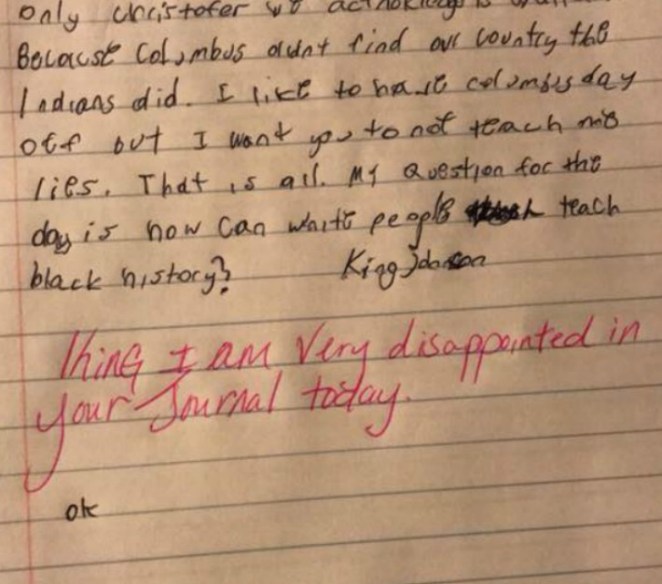 only Christofer we acknokledge is
Because Columbus didnt find our country the
Indians did. I like to have columbus day
off but I want you to not teach me
lies. That is all. My question for the
day is how can white people teach
black history? King Johnson
King I am Very disappointed in
your Journal today.
ok